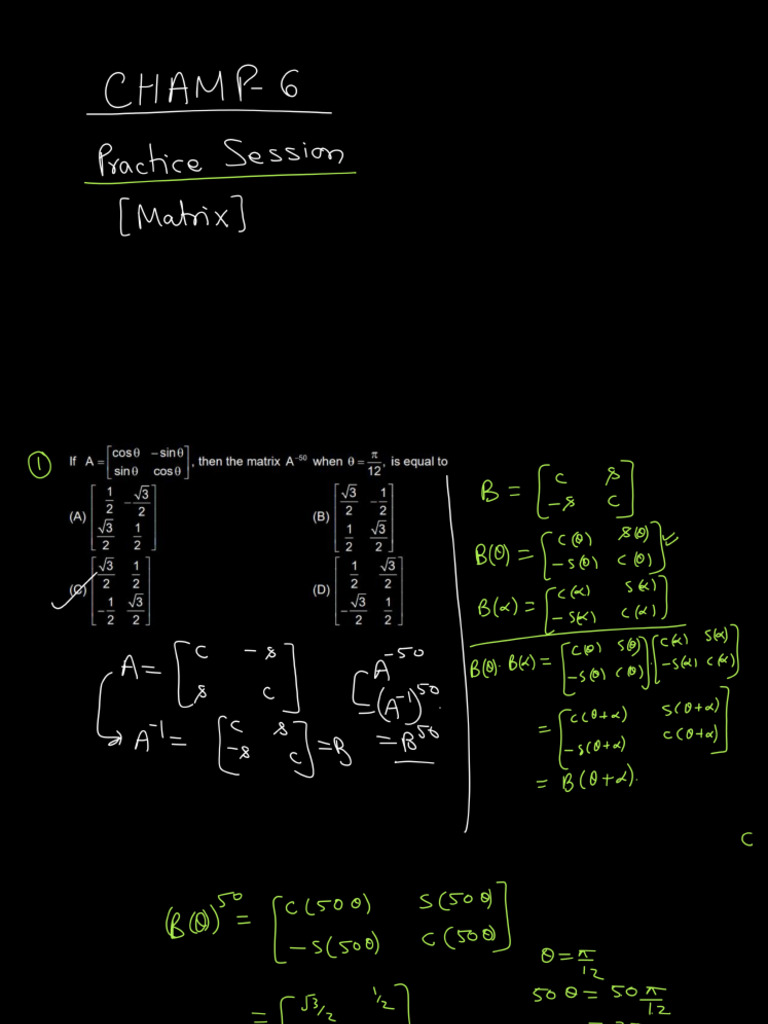 CHAMP-6
Practice Session
[Matrix]
① If A = [cosθ −sinθ; sinθ cosθ], then the matrix A⁻⁵⁰ when θ = π/12, is equal to
(A) [1/2 −√3/2; √3/2 1/2]
(B) [√3/2 −1/2; 1/2 √3/2]
(C) [√3/2 1/2; −1/2 √3/2]
(D) [1/2 √3/2; −√3/2 1/2]
A = [c −s; s c]
A⁻¹ = [c s; −s c] = B
A⁻⁵⁰
= (A⁻¹)⁵⁰.
= B⁵⁰
B = [c s; −s c]
B(θ) = [c(θ) s(θ); −s(θ) c(θ)]
B(α) = [c(α) s(α); −s(α) c(α)]
B(θ)·B(α) = [c(θ) s(θ); −s(θ) c(θ)]·[c(α) s(α); −s(α) c(α)]
= [c(θ+α) s(θ+α); −s(θ+α) c(θ+α)]
= B(θ+α).
C
(B(θ))⁵⁰ = [c(50θ) s(50θ); −s(50θ) c(50θ)]
= [√3/2 1/2
θ = π/12
50θ = 50 π/12